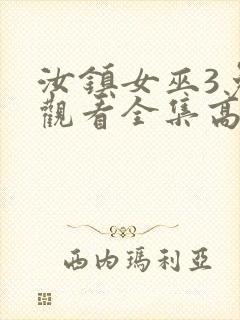 汝鎮女巫3
觀看全集高
西内瑪利亞